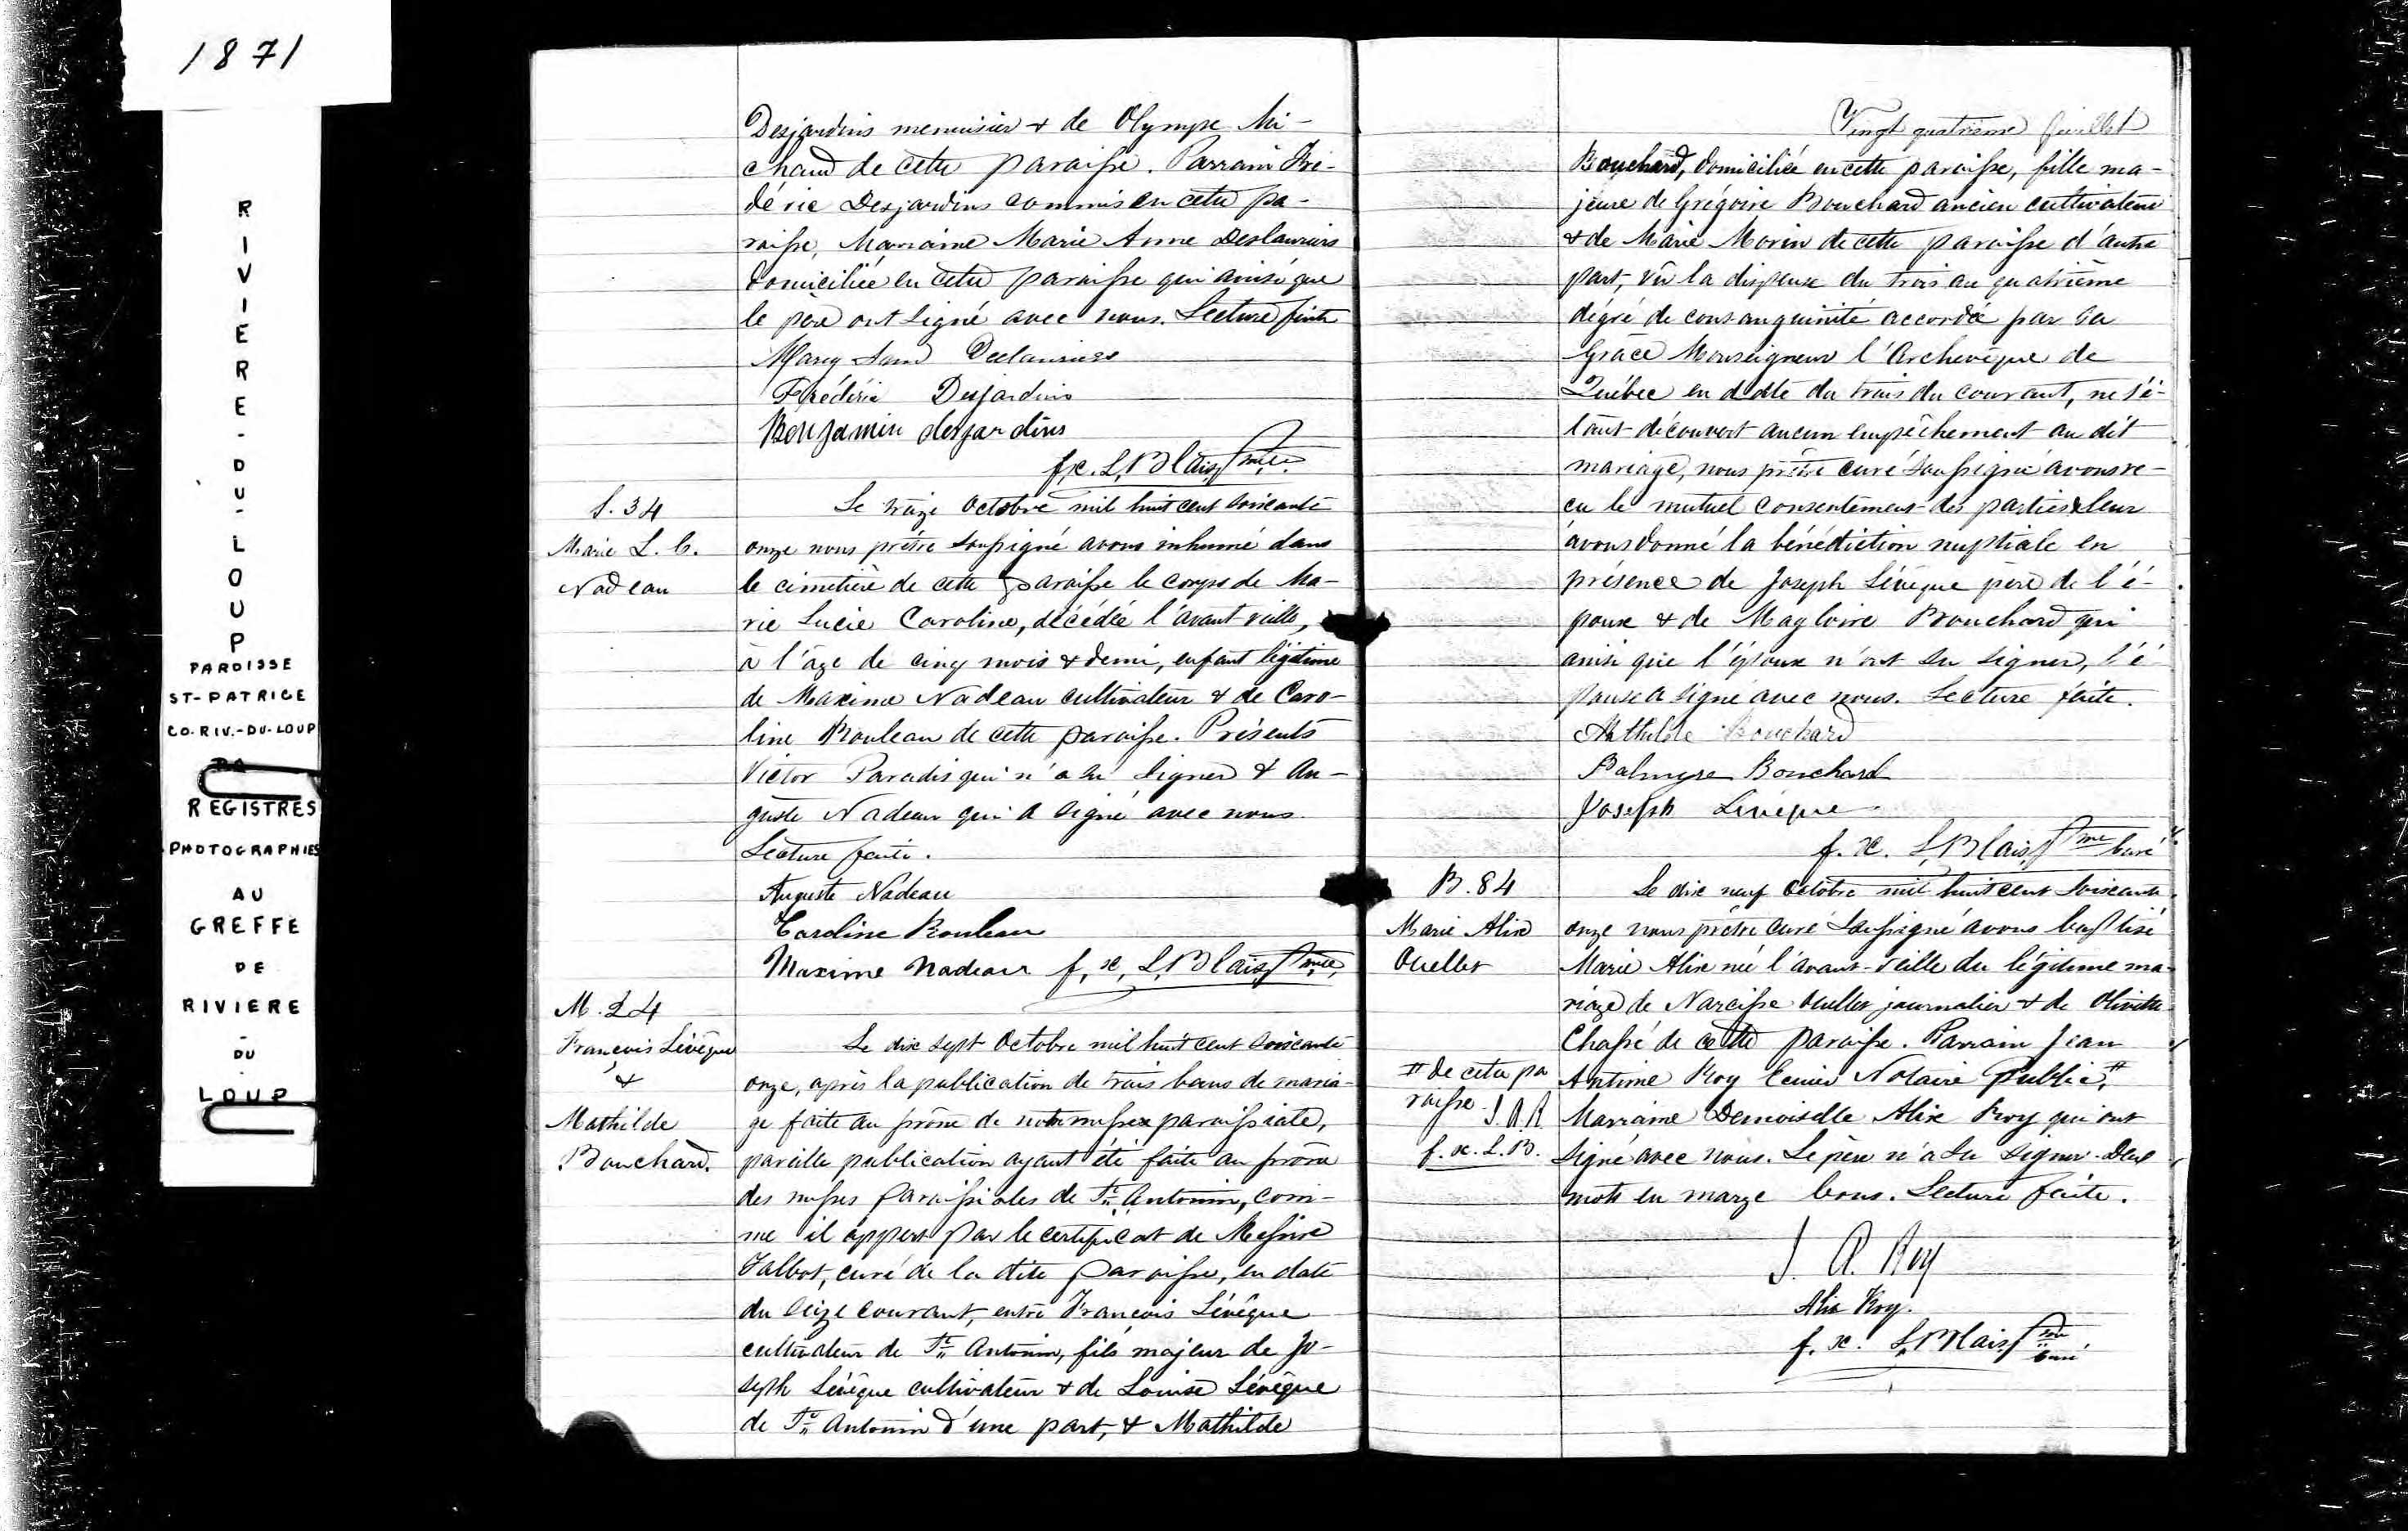 1871
RIVIERE-DU-LOUP
PAROISSE
ST-PATRICE
CO. RIV.-DU-LOUP
REGISTRES
PHOTOGRAPHIES
AU
GREFFE
DE
RIVIERE
-
DU
LOUP
Desjardins menuisier & de Olympe Mi-
chaud de cette paroisse. Parrain Fré-
déric Desjardins commis en cette pa-
roisse, Marraine Marie Anne Deslauriers
domiciliée en cette paroisse qui ainsi que
le père ont signé avec nous. Lecture faite
Mary Deslauriers
Frédéric Desjardins
Benjamin desjardins
f. x. L. Blais, ptre
S. 34
Marie L. C.
Nadeau
Le treize Octobre mil huit cent soixante
onze nous prêtre soussigné avons inhumé dans
le cimetière de cette paroisse le corps de Ma-
rie Lucie Caroline, décédée l'avant veille,
à l'âge de cinq mois & demi, enfant légitime
de Maxime Nadeau cultivateur & de Caro-
line Rouleau de cette paroisse. Présents
Victor Paradis qui n'a su signer & Au-
guste Nadeau qui a signé avec nous.
Lecture faite.
Auguste Nadeau
Caroline Rouleau
Maxime Nadeau f. x. L. Blais, ptre
M. 24
François Lévêque
&
Mathilde
Bouchard.
Le dix sept Octobre mil huit cent soixante
onze, après la publication de trois bans de maria-
ge faite au prône de notre messe paroissiale,
pareille publication ayant été faite au prône
des messes paroissiales de St. Antonin, com-
me il appert par le certificat de Messire
Talbot, curé de la dite paroisse, en date
du seize courant, entre François Lévêque
cultivateur de St. Antonin, fils majeur de Jo-
seph Lévêque cultivateur & de Louise Lévêque
de St. Antonin d'une part, & Mathilde
Vingt quatrième feuillet
Bouchard, domiciliée en cette paroisse, fille ma-
jeure de Grégoire Bouchard ancien cultivateur
& de Marie Morin de cette paroisse d'autre
part, vû la dispense du trois au quatrième
dégré de consanguinité accordée par Sa
Grâce Monseigneur l'Archevêque de
Québec en date du trois du courant, ne s'é-
tant découvert aucun empêchement au dit
mariage, nous prêtre curé soussigné avons re-
çu le mutuel consentement des parties & leur
avons donné la bénédiction nuptiale en
présence de Joseph Lévêque père de l'é-
poux & de Magloire Bouchard qui
ainsi que l'époux n'ont su signer, l'é-
pouse a signé avec nous. Lecture faite.
Mathilde Bouchard
Palmyre Bouchard
Joseph Lévêque
f. x. L. Blais, ptre curé
B. 84
Marie Alix
Ouellet
Le dix neuf Octobre mil huit cent soixante
onze nous prêtre curé soussigné avons baptisé
Marie Alix née l'avant-veille du légitime ma-
riage de Narcisse Ouellet journalier & de Olivette
Chassé de cette paroisse. Parrain Jean
Antime Roy Ecuier Notaire Public,#
# de cette pa
roisse J. A. R.
f. x. L. B.
Marraine Demoiselle Alix Roy qui ont
signé avec nous. Le père n'a su signer. Deux
mots en marge bons. Lecture faite.
J. A. Roy
Alix Roy.
f. x. L. Blais, ptre
curé